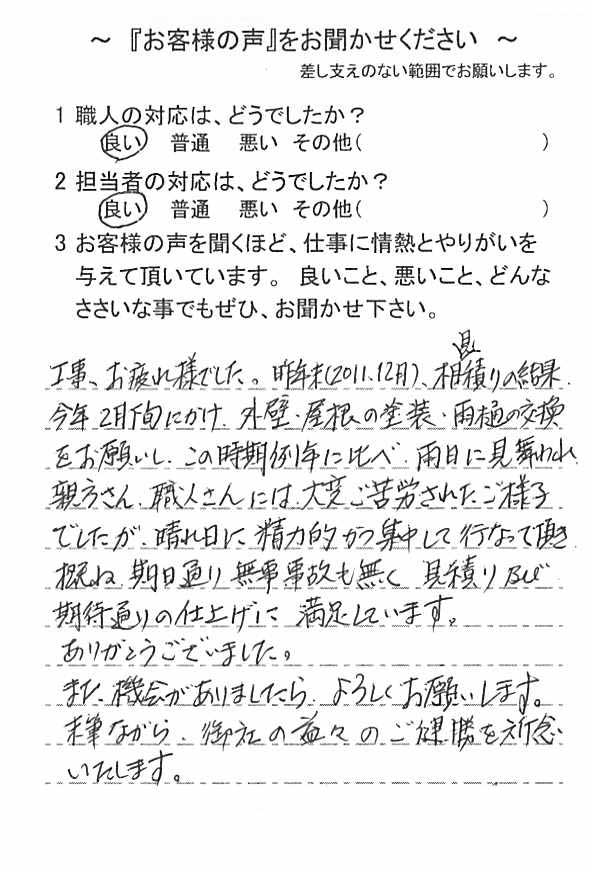 ～ 『お客様の声』をお聞かせください ～
差し支えのない範囲でお願いします。
1 職人の対応は、どうでしたか？
良い 普通 悪い その他( )
2 担当者の対応は、どうでしたか？
良い 普通 悪い その他( )
3 お客様の声を聞くほど、仕事に情熱とやりがいを
与えて頂いています。 良いこと、悪いこと、どんな
ささいな事でもぜひ、お聞かせ下さい。
見
工事、お疲れ様でした。昨年末(2011.12月)、相積りの結果、
今年2月下旬にかけ、外壁・屋根の塗装・雨樋の交換
をお願いし、この時期例年に比べ、雨日に見舞われ
親方さん、職人さんには、大変ご苦労されたご様子
でしたが、晴れ日に精力的かつ集中して行なって頂き
概ね、期日通り無事事故も無く 見積り及び
期待通りの仕上げに満足しています。
ありがとうございました。
また、機会がありましたら、よろしくお願いします。
末筆ながら、御社の益々のご健勝を祈念
いたします。